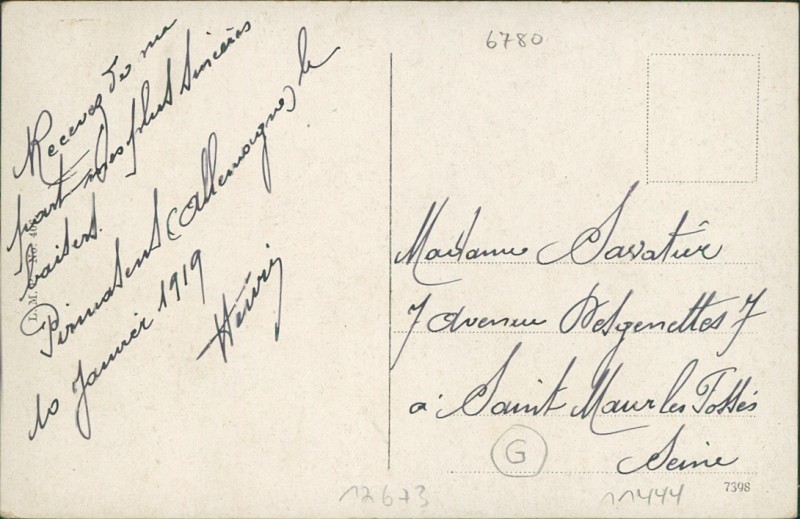 6780
Recevez de ma
part mes plus sincères
baisers.
Pirmasens (Allemagne) le
10 Janvier 1919
Henri
Madame Savatier
7 Avenue Desgenettes 7
à Saint Maur les Fossés
Seine
G
12673
11444
7398